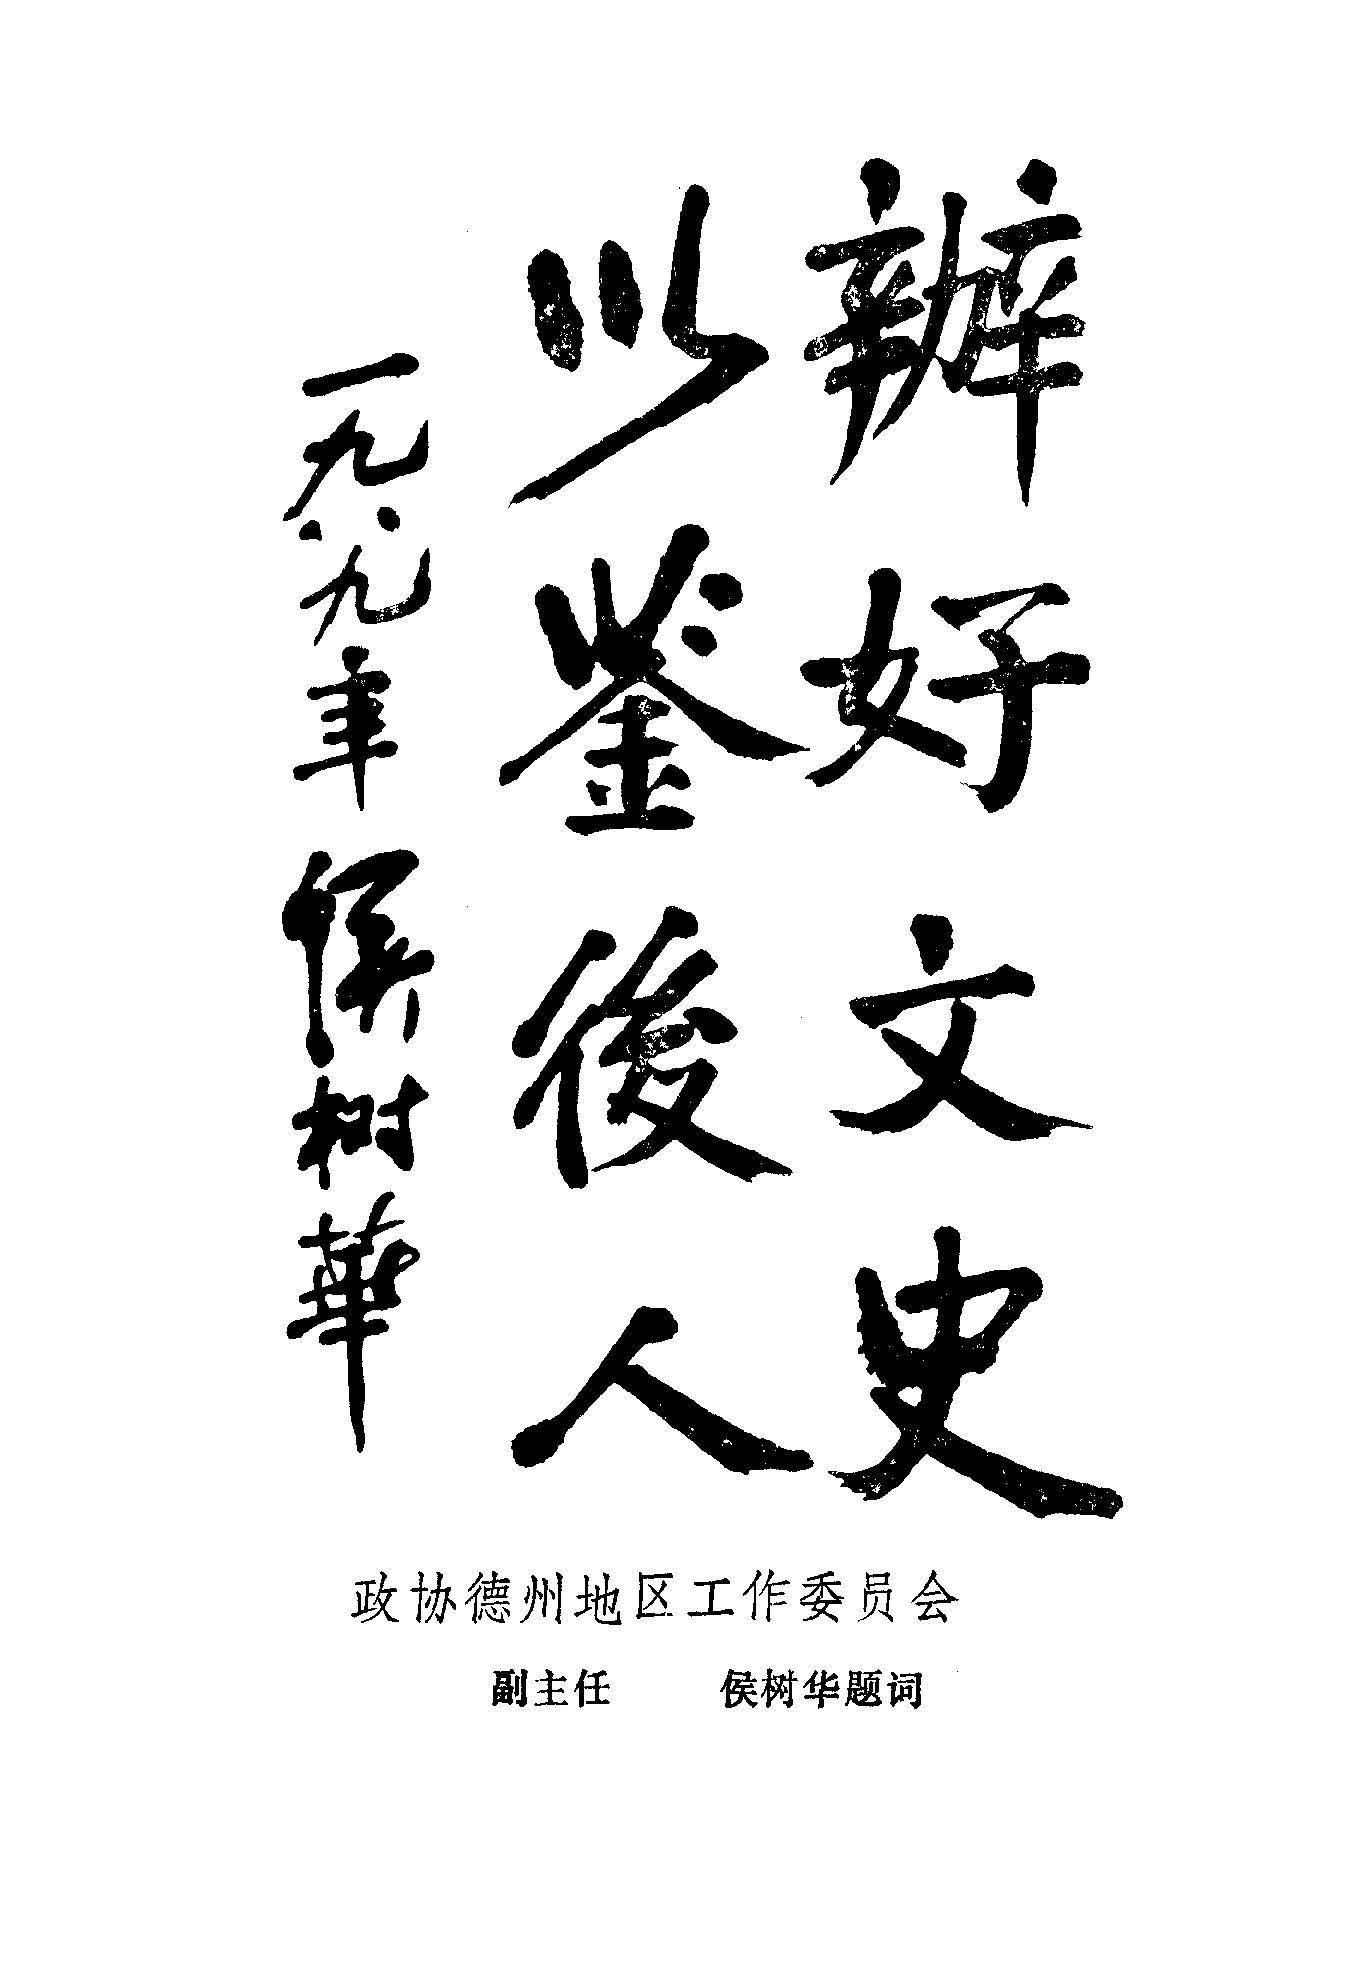 辦好文史
以鉴後人
一九八九年 侯树華
政协德州地区工作委员会
副主任 侯树华题词